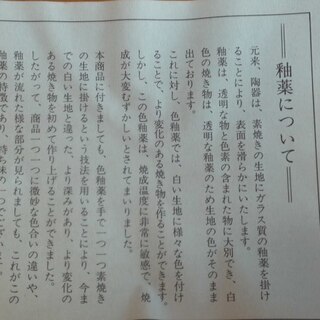 釉薬について
元来、陶器は、素焼きの生地にガラス質の釉薬を掛け
ることにより、表面を滑らかにいたします。
釉薬は、透明な物と色素の含まれた物に大別でき、白
色の焼き物は、透明な釉薬のため生地の色がそのまま
出ております。
これに対し、色釉薬では、白い生地に様々な色を付け
ることで、より変化のある焼き物を作ることができます。
しかし、この色釉薬は、焼成温度に非常に敏感で、焼
成が大変むずかしいとされてまいりました。
本商品に付きましても、色釉薬を手で一つ一つ素焼き
の生地に掛けるという技法を用いることにより、今ま
での白い生地と違った、より深みがあり、より変化の
ある焼き物を初めて作り上げることができました。
したがって、商品一つ一つに微妙な色合いの違いや、
釉薬が流れた様な部分が見られましても、これがこの
釉薬の特徴であり、持ち味の一つでございま